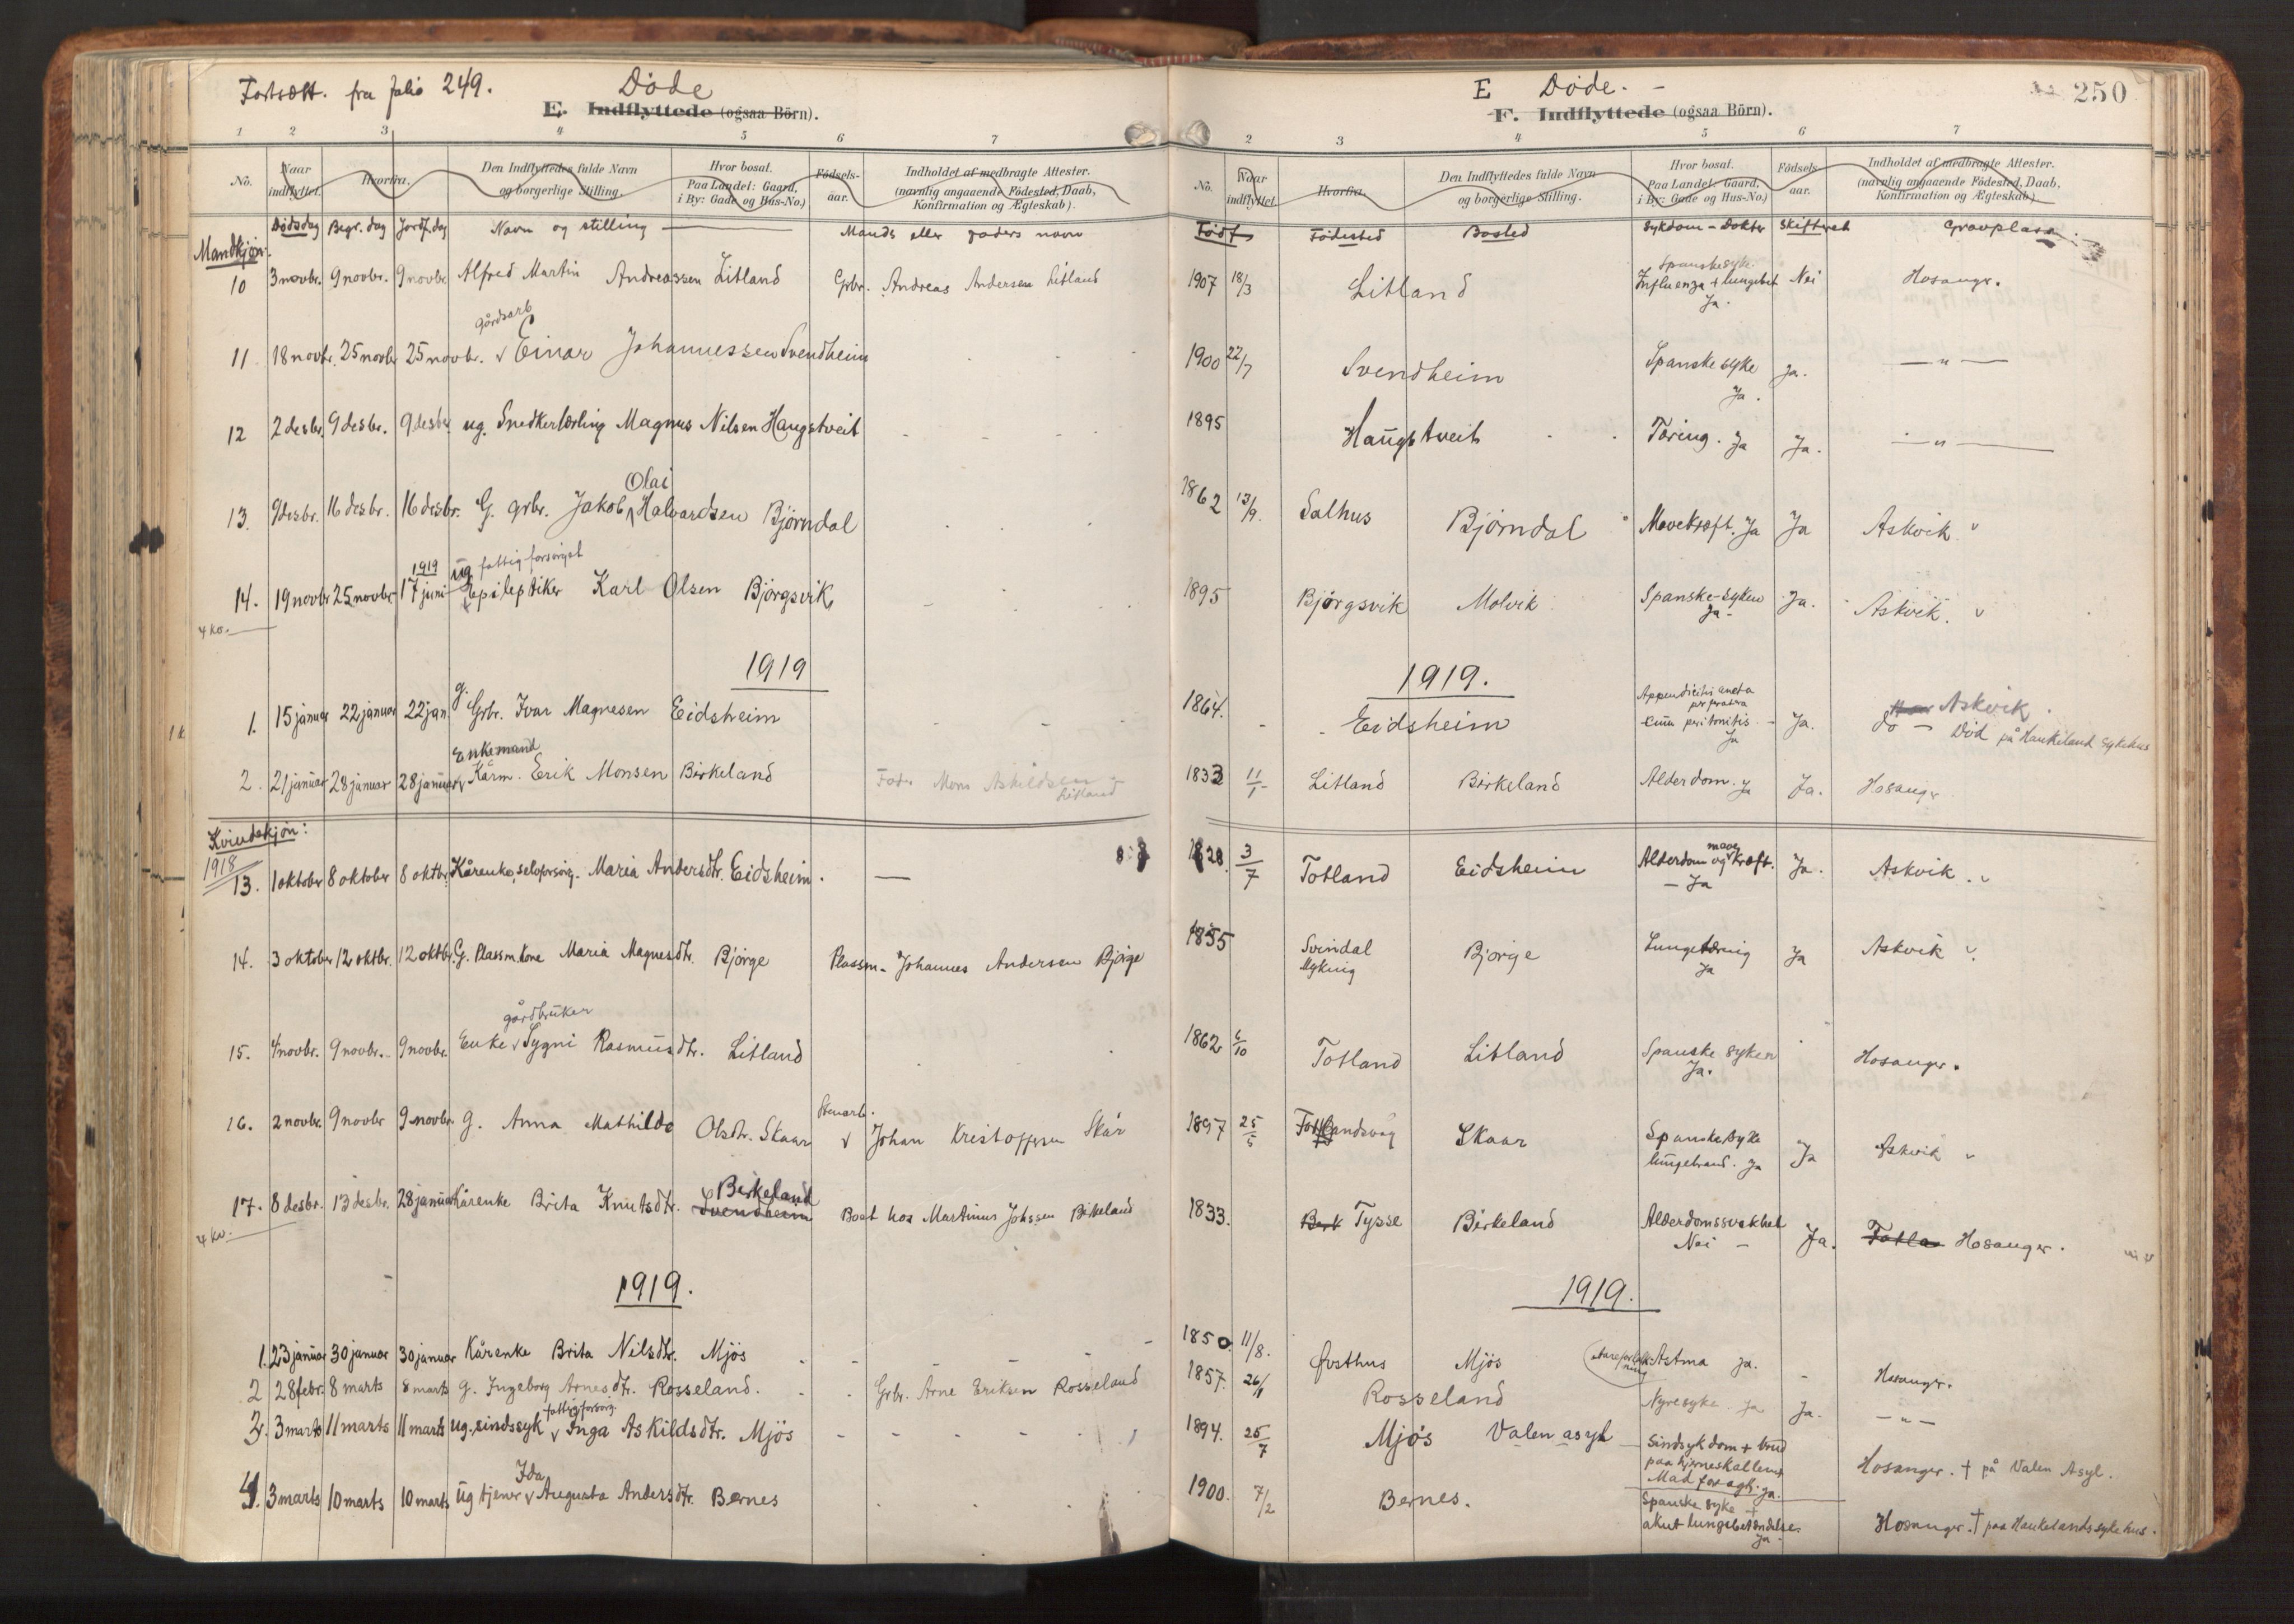 Fortsætt. fra folio 249.
Døde
E. Indflyttede (ogsaa Börn).
1 2 3 4 5 6 7
No. Naar indflyttet. Hvorfra. Den Indflyttedes fulde Navn og borgerlige Stilling. Hvor bosat. Paa Landet: Gaard, i By: Gade og Hus-No.) Fødsels-aar. Indholdet af medbragte Attester. (navnlig angaaende Födested, Daab, Konfirmation og Ægteskab).
Dødsdag Begr. dag Jordf. dag Navn og stilling Mands eller faders navn
Mandkjøn:
10 3 novbr. 9 novbr. 9 novbr. Alfred Martin Andreassen Litland Grbr. Andreas Andersen Litland
gårdsarb
11 18 novbr. 25 novbr 25 novbr. v Einar Johannessen Svendheim
12 2 desbr. 9 desbr. 9 desbr. ug. Snedkerlærling Magnus Nilsen Haugstveit
Olai
13. 9 desbr. 16 desbr. 16 desbr. G. grbr. Jakob Halvardsen Björndal
1919 ug fattigforsørget
14. 19 novbr 25 novbr 17 juni epileptiker Karl Olsen Bjørgsvik
4 kv.
1919
1. 15 januar 22 januar 22 jan. g. Grbr. Ivar Magnesen Eidsheim
Enkemand
2. 21 januar 28 januar 28 januar v Kårm. Erik Monsen Birkeland Mons Askildsen Litland
Kvindekjøn:
1918
13. 1 oktober 8 oktober 8 oktbr. Kårenke, selvforsørg. Maria Andersdtr. Eidsheim.
14. 3 oktober 12 oktbr. 12 oktbr. G. Plassm.kone Maria Magnesdtr. Bjørge Plassm. Johannes Andersen Bjørge
gårdbruker
15. 4 novbr. 9 novbr. 9 novbr. Enke v Sygni Rasmusdtr. Litland
Stenarb.
16. 2 novbr. 9 novbr 9 novbr. g. Anna Mathilde Olsdtr. Skaar v Johan Kristoffersen Skår
Birkeland
17. 8 desbr. 13 desbr. 28 januar Kårenke Brita Knutsdtr. Svendheim Boet hos Martinus Johssen Birkeland
4 kv.
1919.
1. 23 januar 30 januar 30 januar Kårenke Brita Nilsdtr. Mjös
2 28 febr. 8 marts 8 marts g. Ingeborg Arnesdtr. Rosseland. Grbr. Arne Eriksen Rosseland
fattigforsørg.
3. 3 marts 11 marts 11 marts ug. sindssyk v Inga Askildsdtr. Mjös
Ida
4. 3 marts 10 marts 10 marts ug tjener v Augusta Andersdtr. Bernes
E Døde. -
250
F. Indflyttede (ogsaa Börn).
2 3 4 5 6 7
No. Naar indflyttet. Hvorfra. Den Indflyttedes fulde Navn og borgerlige Stilling. Hvor bosat. Paa Landet: Gaard, i By: Gade og Hus-No.) Fødsels-aar. Indholdet af medbragte Attester. (navnlig angaaende Födested, Daab, Konfirmation og Ægteskab).
Født Fødested Bosted Sykdom - Dokter Skifteret Gravplass
1907 18/3 Litland Spanskesyke. Influenza + lungebet Ja. Nei Hosanger.
1900 22/7 Svendheim Spanske syke Ja. Ja. — " —
1895 Haugstveit Tæring. Ja Ja. — " —
1862 13/9. Salhus Bjørndal Mavekræft. Ja Ja Askvik v
1895 Bjørgsvik Molvik Spanske-syken Ja - Ja. Askvik. v
1919.
1864. Eidsheim Appendicitis perforativa cum peritonitis - Ja Ja. Askvik. do - Død på Haukeland sykehus
1833 11/1 Litland Birkeland Alderdom. Ja Ja. Hosanger
1828. 3/7 Totland Eidsheim Alderdom og mave kræft. - Ja Ja. Askvik. v
1855 Svindal Myking Bjørge Lungetæring Ja Ja Askvik v.
1862 6/10 Totland Litland Spanske syken Ja. Hosanger.
1897 25/5 Totlandsvåg Skaar Spanske syke lungebrand. Ja Ja Askvik v
1833. Berk Tysse Birkeland Alderdomssvakhet Nei - Ja. Totla Hosanger.
1919.
1850. 11/8. Østhus Mjøs Astma Ja. - Hosanger.
1857. 26/1 Rosseland Nyresyke. Ja Ja. - " -
1894. 25/7 Mjøs Valen asyl Sindsykdom + brud paa hjerneskallen. Ja. Hosanger. † på Valen Asyl.
1900. 7/2 Bernes. Spanske syke + akut lungebetændelse. Ja - Hosanger. † paa Haukelands sykehus.